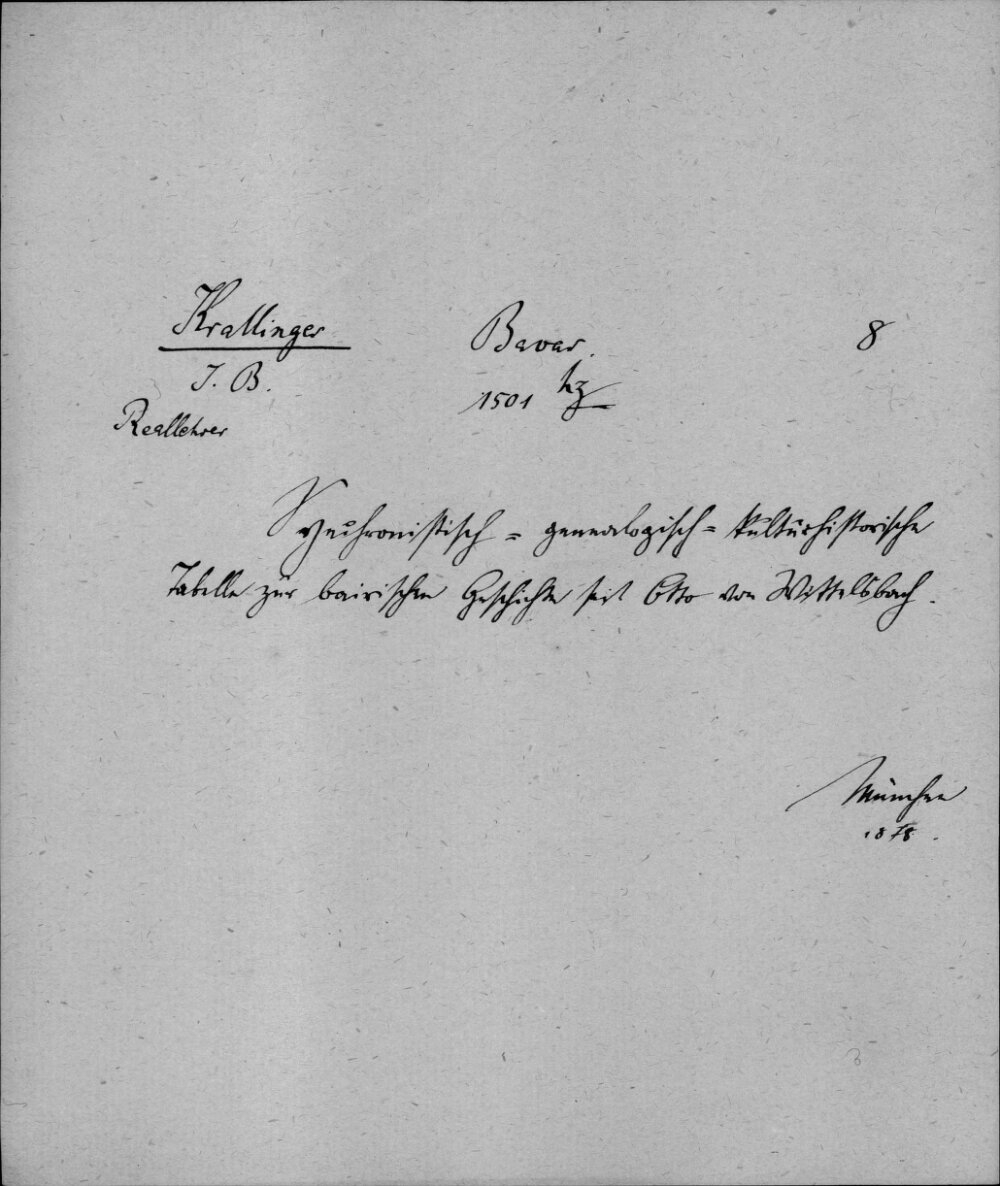 Krallinger
J. B.
Reallehrer
Bavar.
1501 hz
8
Synchronistisch = genealogisch = kulturhistorische
Tabelle zur bairischen Geschichte seit Otto von Wittelsbach.
München
1878.